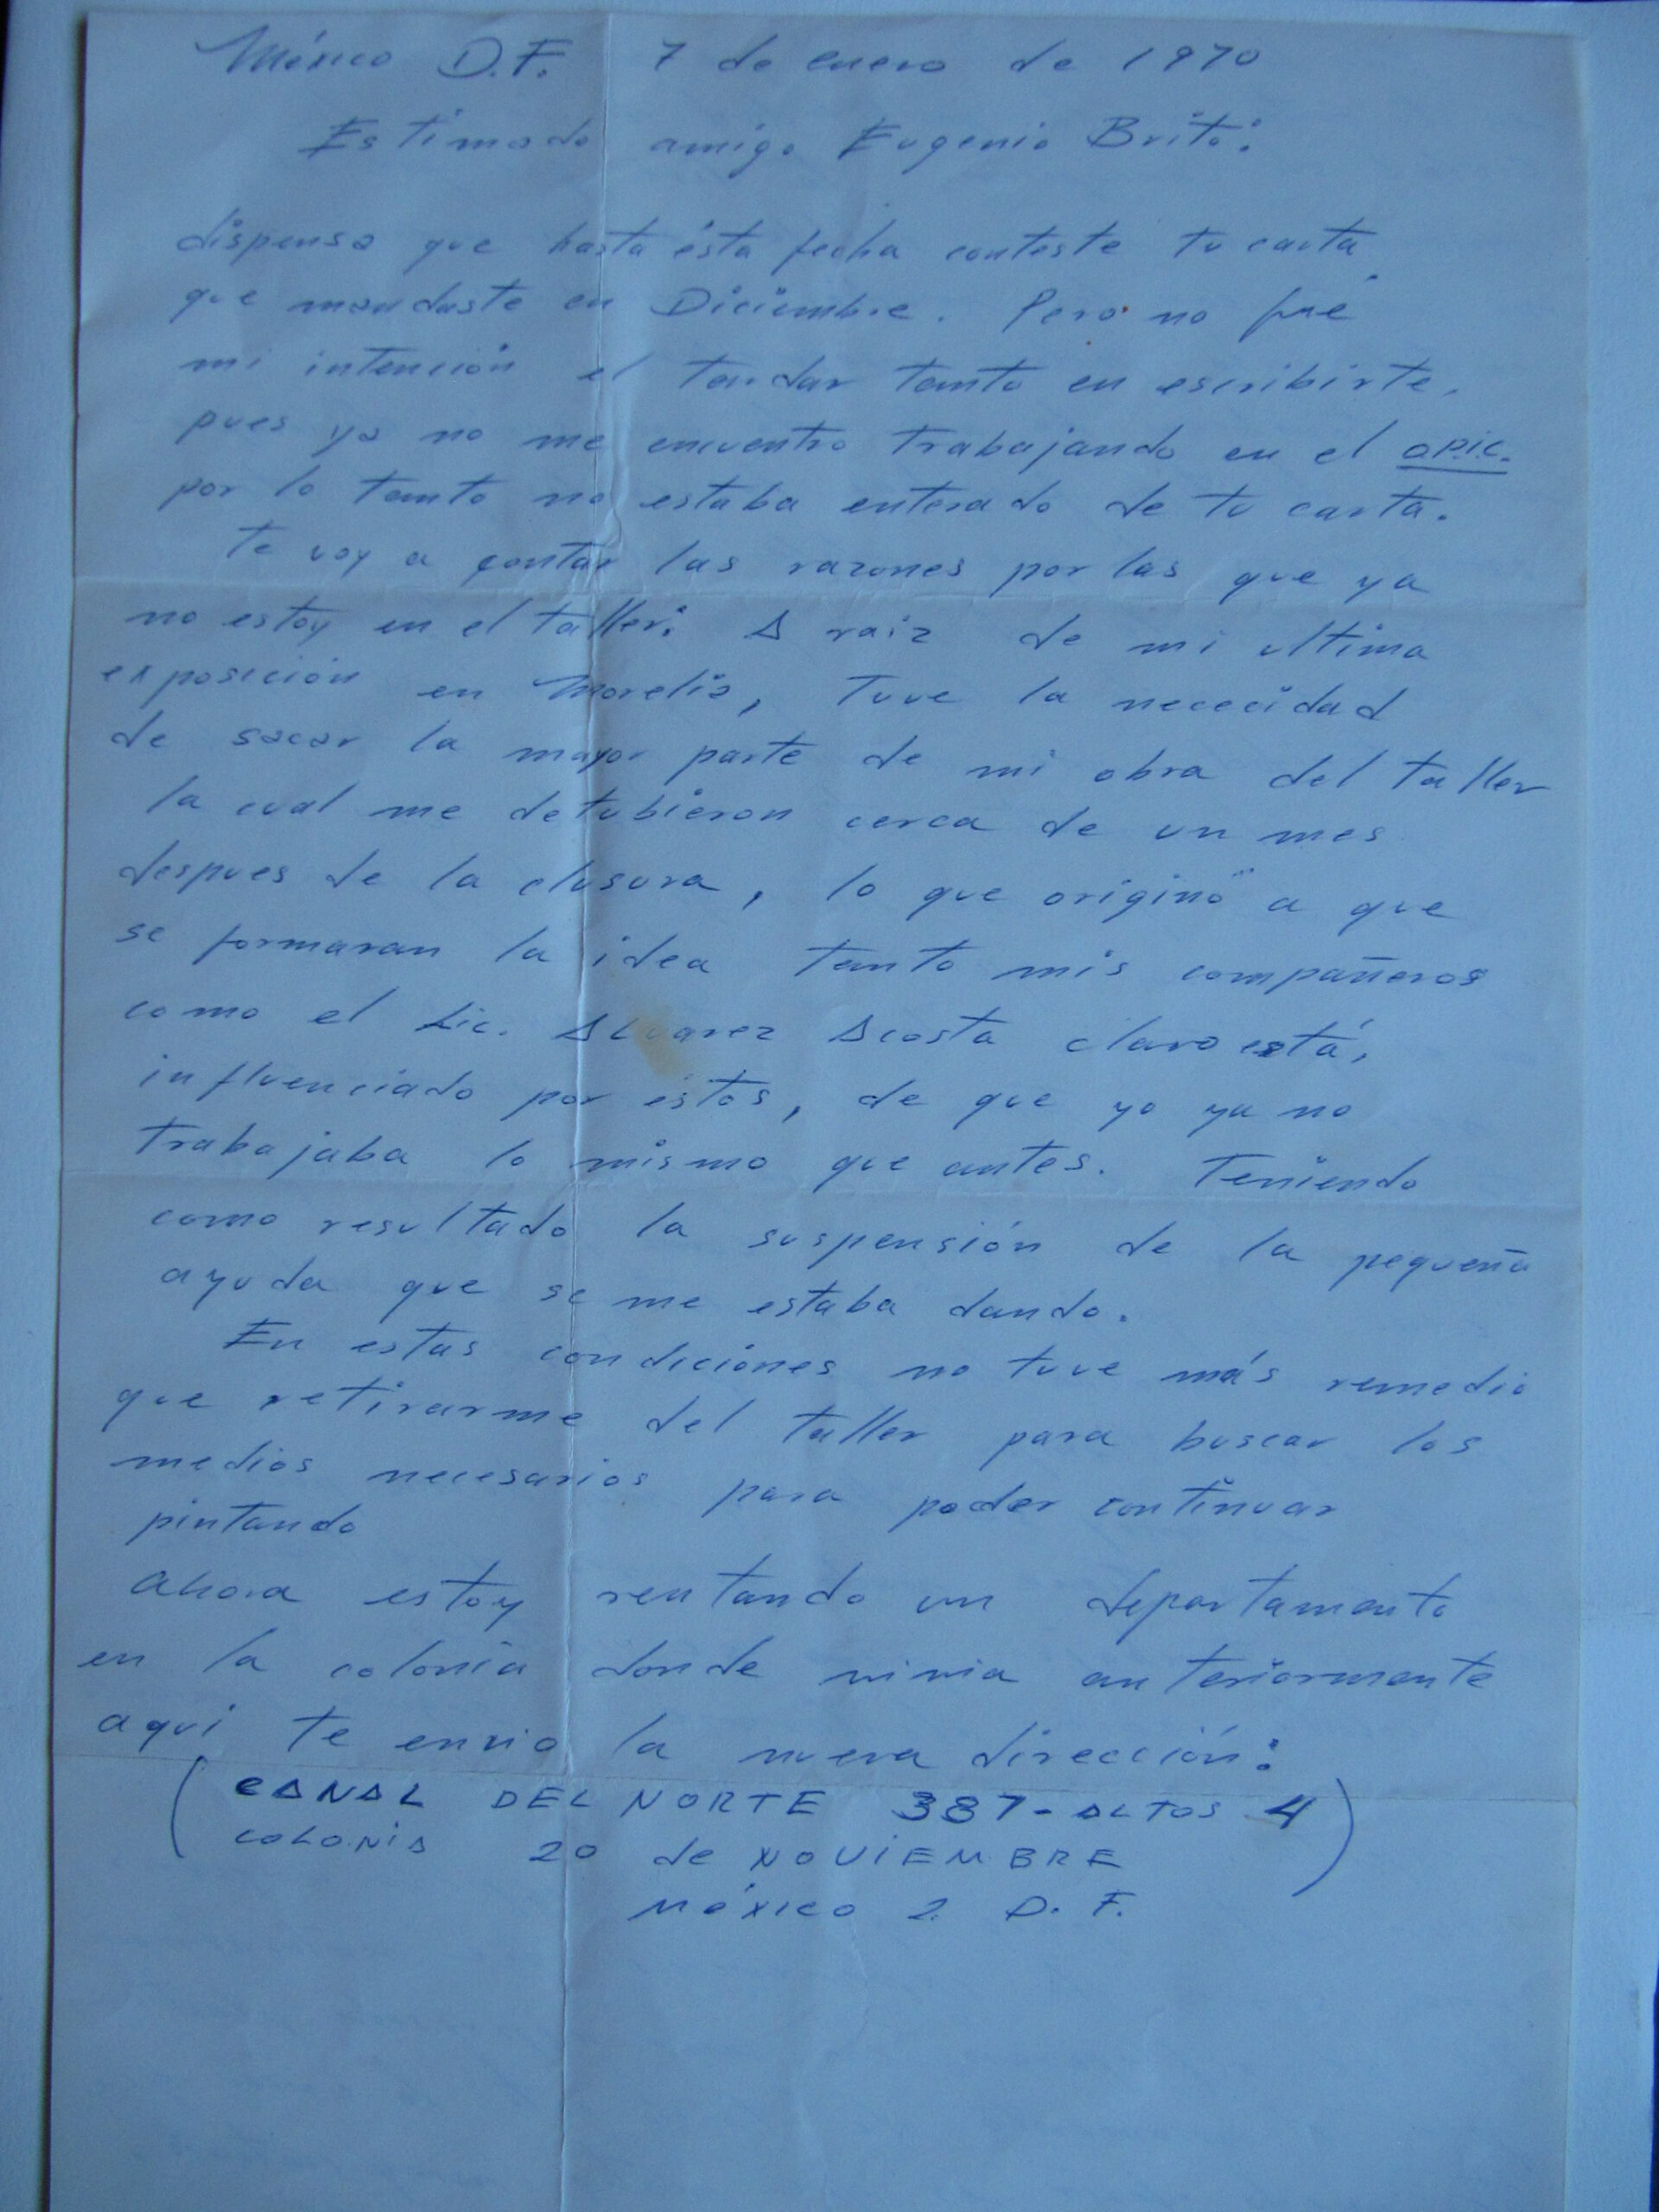 México D.F. 7 de enero de 1970
Estimado amigo Eugenio Brito:
dispensa que hasta ésta fecha conteste tu carta
que mandaste en Diciembre. Pero no fué
mi intención el tardar tanto en escribirte,
pues ya no me encuentro trabajando en el O.P.I.C.
por lo tanto no estaba enterado de tu carta.
Te voy a contar las razones por las que ya
no estoy en el taller: A raiz de mi ultima
exposición en Morelia, tuve la nececidad
de sacar la mayor parte de mi obra del taller
la cual me detubieron cerca de un mes
despues de la clusura, lo que originó a que
se formaran la idea tanto mis compañeros
como el Lic. Alvarez Acosta claro está,
influenciado por éstos, de que yo ya no
trabajaba lo mismo que antes. Teniendo
como resultado la suspensión de la pequeña
ayuda que se me estaba dando.
En estas condiciones no tuve más remedio
que retirarme del taller para buscar los
medios necesarios para poder continuar
pintando
Ahora estoy rentando un departamento
en la colonia donde vivia anteriormente
aqui te envio la nueva dirección:
(CANAL DEL NORTE 387-ALTOS 4)
COLONIA 20 de NOVIEMBRE
MéXICO 2. D.F.